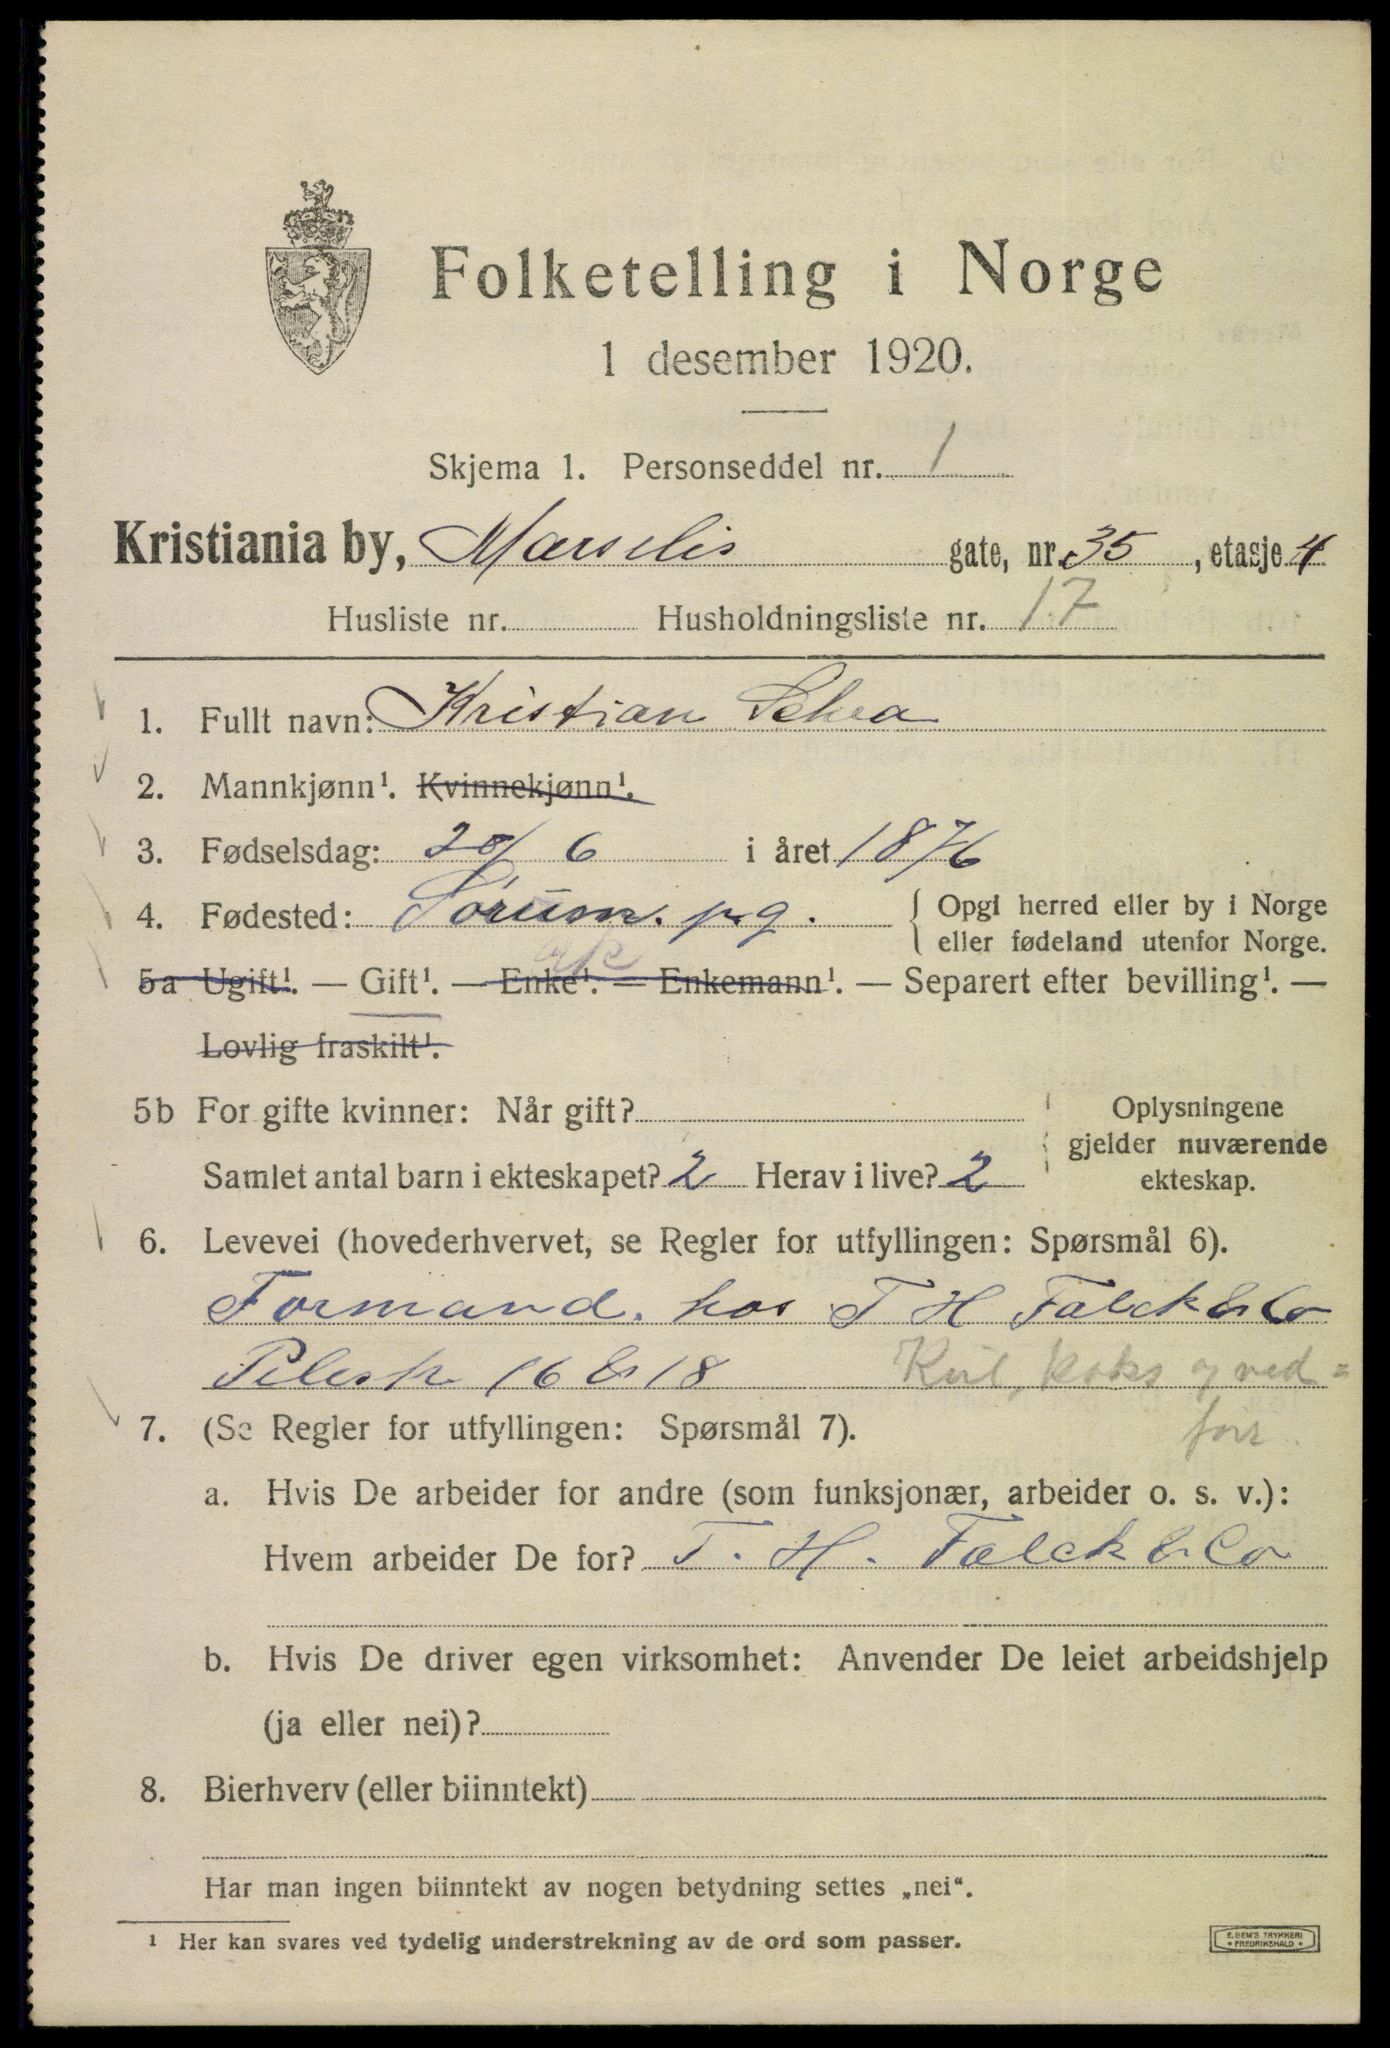 Folketelling i Norge
1 desember 1920.
Skjema 1. Personseddel nr. 1
Kristiania by, Marselis gate, nr. 35, etasje 4
Husliste nr. Husholdningsliste nr. 17
1. Fullt navn: Kristian Schea
2. Mannkjønn¹. Kvinnekjønn¹.
3. Fødselsdag: 20/6 i året 1876
4. Fødested: Sørum. p. g. { Opgi herred eller by i Norge
eller fødeland utenfor Norge.
ak
5a Ugift¹. — Gift¹. — Enke¹. — Enkemann¹. — Separert efter bevilling¹. —
Lovlig fraskilt¹.
5b For gifte kvinner: Når gift? Oplysningene
gjelder nuværende
Samlet antal barn i ekteskapet? 2 Herav i live? 2 ekteskap.
6. Levevei (hovederhvervet, se Regler for utfyllingen: Spørsmål 6).
Formand. hos T H Falck & Co
Pilestr 16 & 18 Kul, koks og ved=
forr
7. (Se Regler for utfyllingen: Spørsmål 7).
a. Hvis De arbeider for andre (som funksjonær, arbeider o. s. v.):
Hvem arbeider De for? T. H. Falck & Co
b. Hvis De driver egen virksomhet: Anvender De leiet arbeidshjelp
(ja eller nei)?
8. Bierhverv (eller biinntekt)
Har man ingen biinntekt av nogen betydning settes „nei“.
¹ Her kan svares ved tydelig understrekning av de ord som passer.
E. SEM'S TRYKKERI
• FREDRIKSHALD •